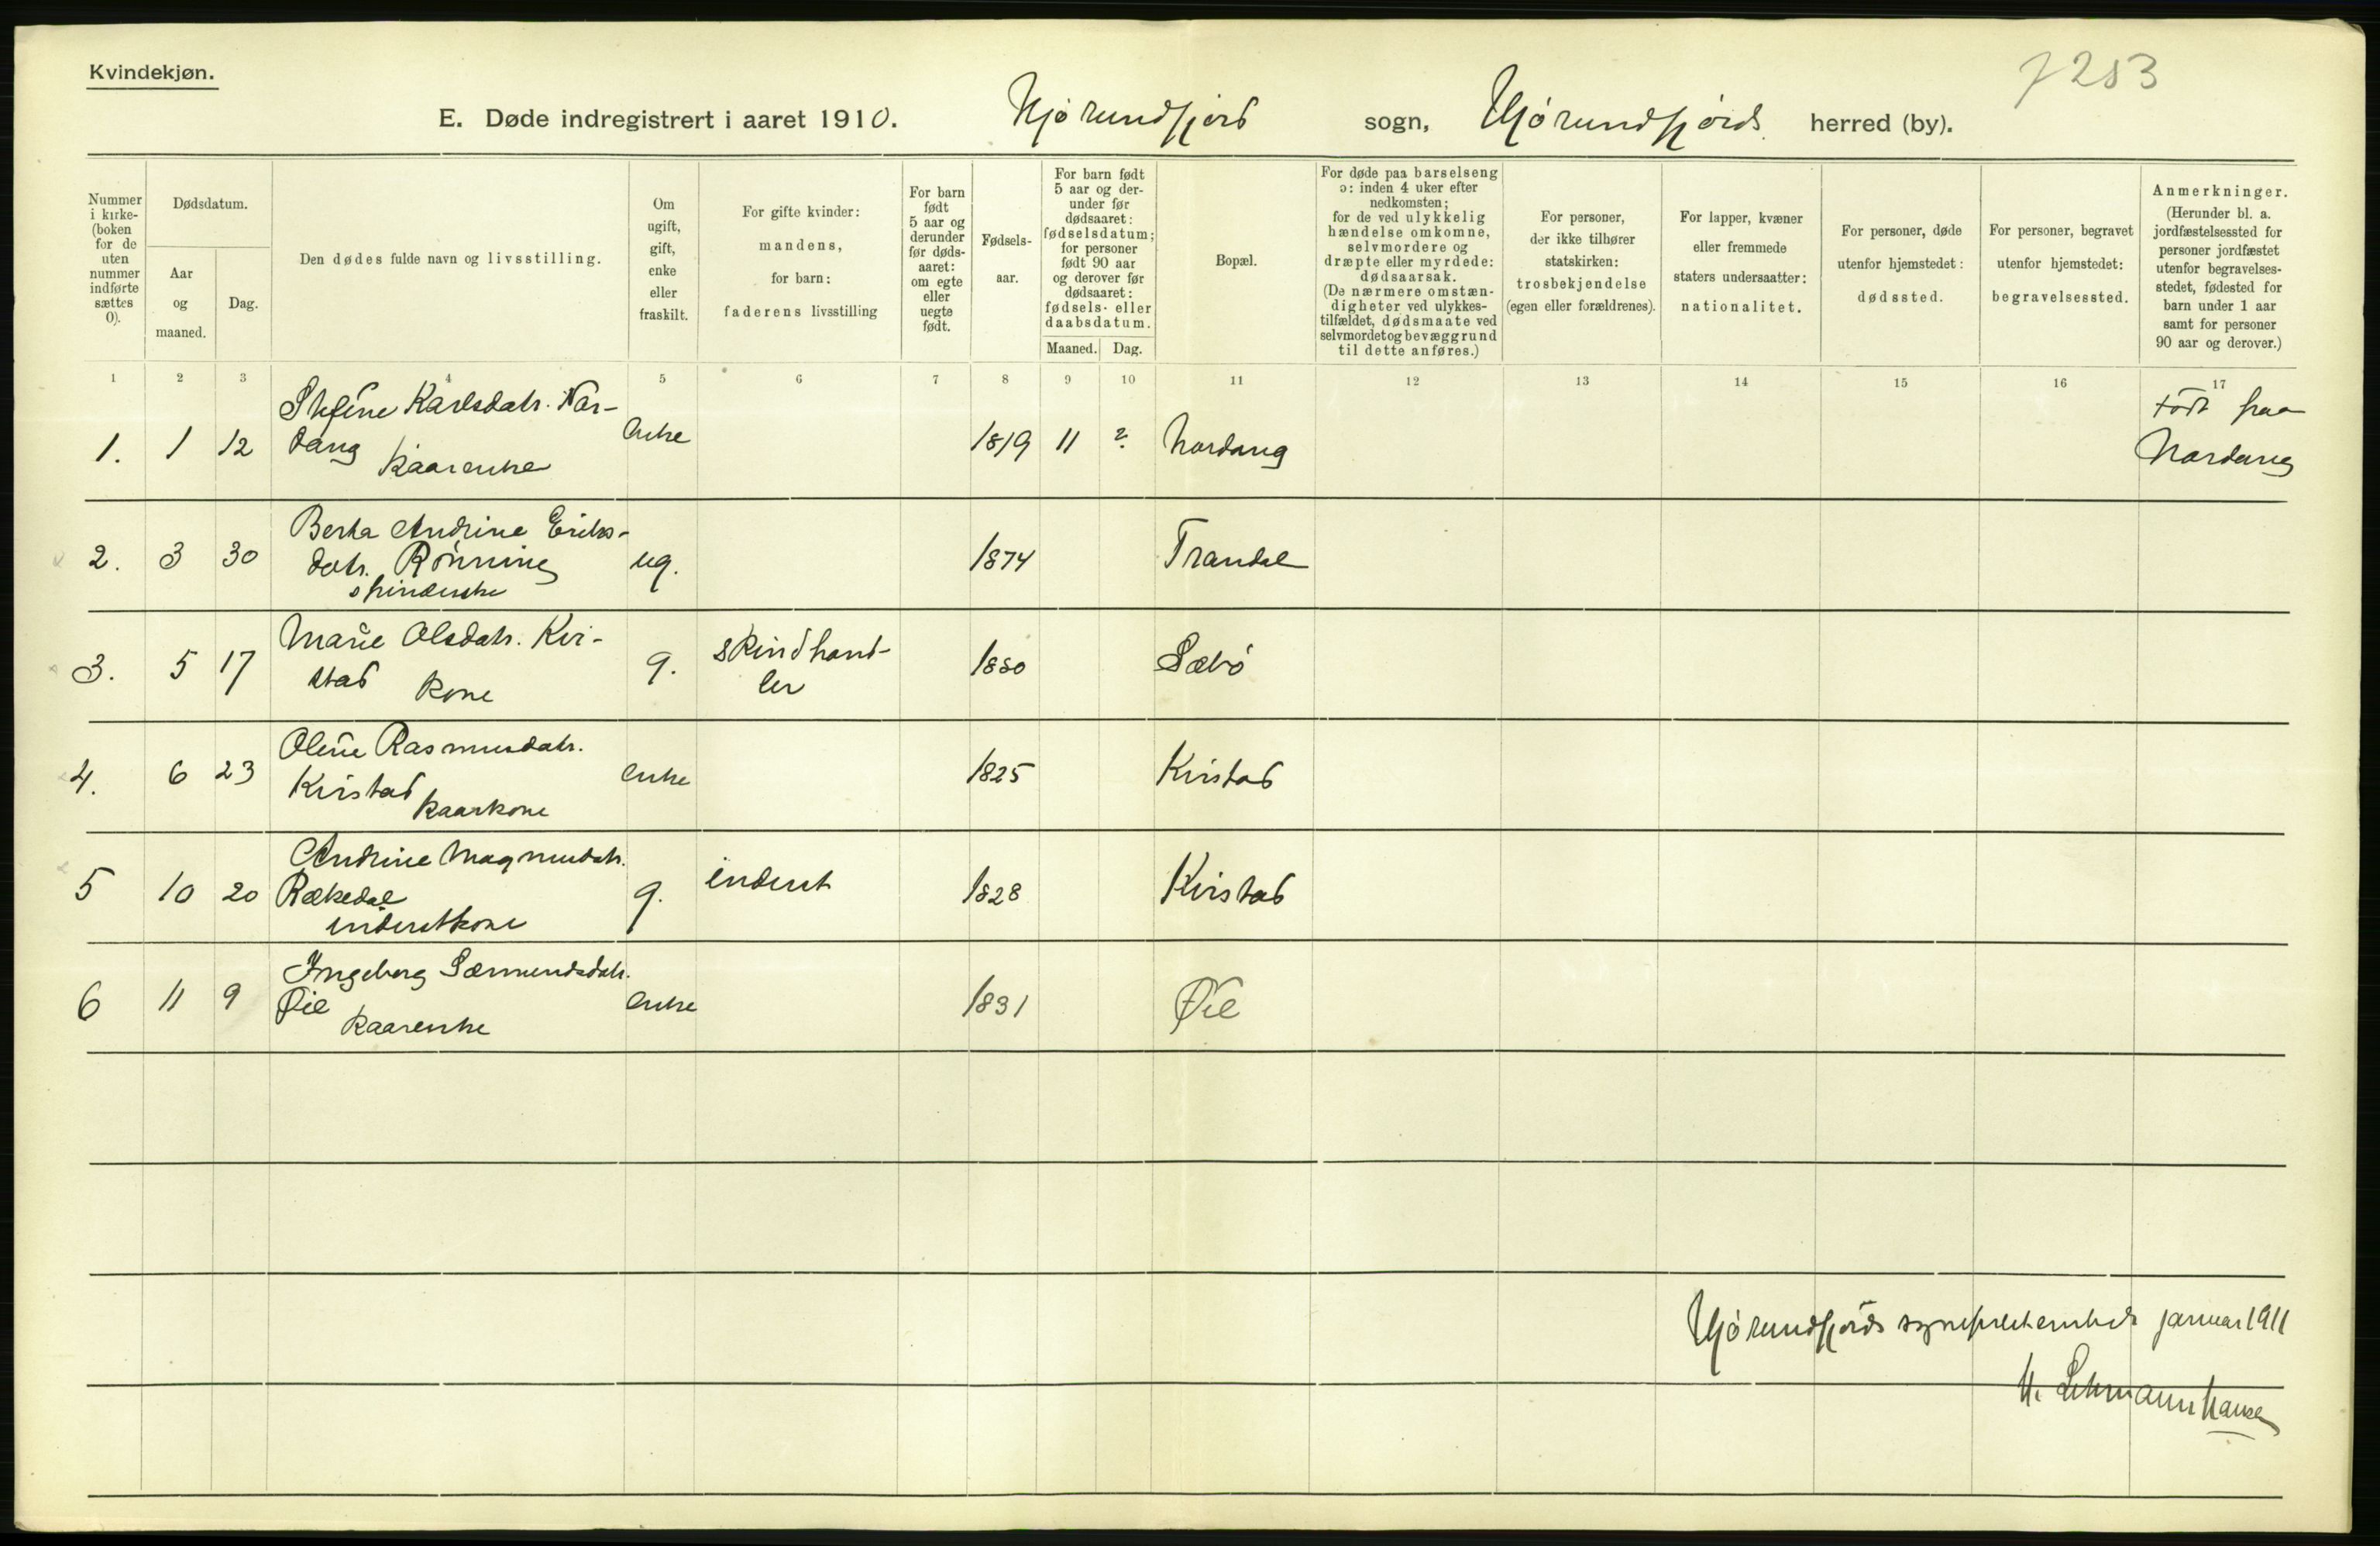 Kvindekjøn.
7253
E. Døde indregistrert i aaret 1910. Hjørundfjord sogn, Hjørundfjords herred (by).
Nummer i kirke-(boken for de uten nummer indførte sættes 0).
Dødsdatum.
Aar og maaned.
Dag.
Den dødes fulde navn og livsstilling.
Om ugift, gift, enke eller fraskilt.
For gifte kvinder: mandens, for barn: faderens livsstilling
For barn født 5 aar og derunder før døds-aaret: om egte eller uegte født.
Fødsels-aar.
For barn født 5 aar og der-under før dødsaaret: fødselsdatum; for personer født 90 aar og derover før dødsaaret: fødsels- eller daabsdatum.
Maaned. Dag.
Bopæl.
For døde paa barselseng ɔ: inden 4 uker efter nedkomsten; for de ved ulykkelig hændelse omkomne, selvmordere og dræpte eller myrdede: dødsaarsak. (De nærmere omstæn-digheter ved ulykkes-tilfældet, dødsmaate ved selvmordet og bevæggrund til dette anføres.)
For personer, der ikke tilhører statskirken: trosbekjendelse (egen eller forældrenes).
For lapper, kvæner eller fremmede staters undersaatter: nationalitet.
For personer, døde utenfor hjemstedet: dødssted.
For personer, begravet utenfor hjemstedet: begravelsessted.
Anmerkninger. (Herunder bl. a. jordfæstelsessted for personer jordfæstet utenfor begravelses-stedet, fødested for barn under 1 aar samt for personer 90 aar og derover.)
1 2 3 4 5 6 7 8 9 10 11 12 13 14 15 16 17
1. 1 12 Karlsdatr. Nor-dang Kaarenke enke 1819 11 2. Nordang født paa Nordang
2. 3 30 Berta Andrine Eriks-datr. Rønning spinderske ug. 1874 Trandal
3. 5 17 Marie Olsdatr. Kvi-stad kone g. skindhand-ler 1850 Sæbø
4. 6 23 Oline Rasmusdatr. Kvistad kaarkone enke 1825 Kvistad
5 10 20 Andrine Magnusdatr. Rækedal inderstkone g. inderst 1828 Kvistad
6 11 9 Ingeborg Sæmundsdatr. Øie Kaarenke enke 1831 Øie
Hjørundfjords sogneprestembede januar 1911
H. Lehmann Hansen